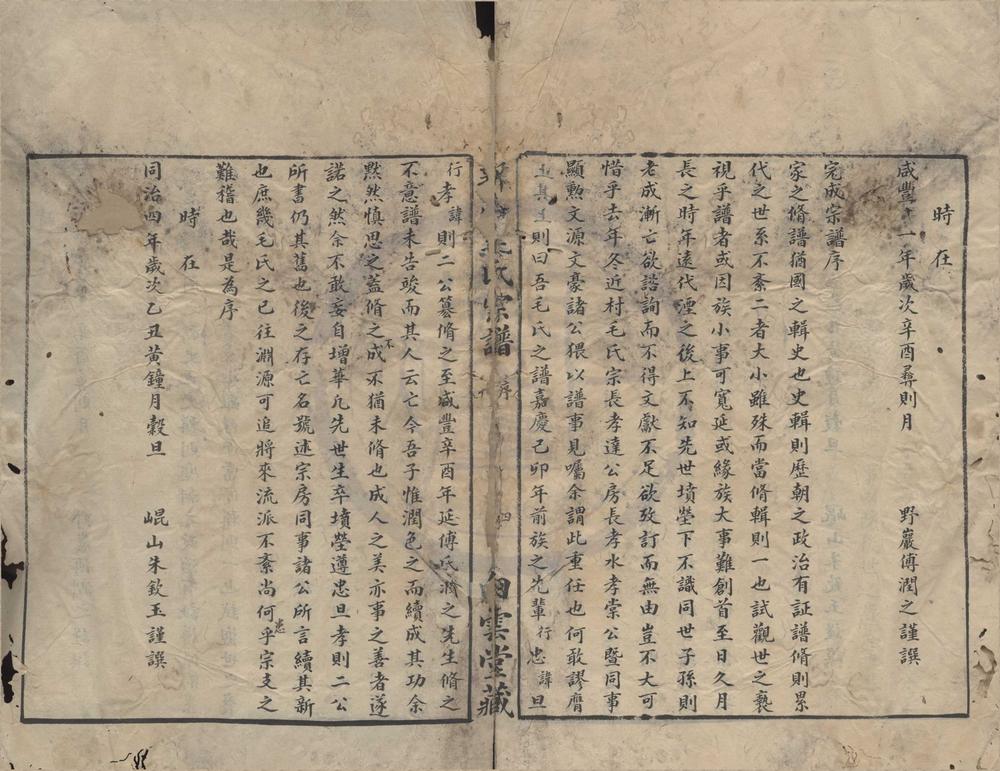 時在
咸豐十一年歲次辛酉彝則月 野巖傅潤之謹譔
完成宗譜序
家之脩譜猶國之輯史也史輯則歷朝之政治有証譜脩則累
代之世系不紊二者大小雖殊而當脩輯則一也試觀世之褻
視乎譜者或因族小事可寬延或緣族大事難創首至日久月
長之時年遠代湮之後上不知先世墳塋下不識同世子孫則
老成漸亡欲諮詢而不得文獻不足欲攷訂而無由豈不大可
惜乎去年冬近村毛氏宗長孝達公房長孝水孝棠公暨同事
顯勲文源文豪諸公猥以譜事見囑余謂此重任也何敢謬膺
則曰吾毛氏之譜嘉慶己卯年前族之先輩行忠諱旦
行孝諱則二公纂脩之至咸豐辛酉年延傅氏濟之先生脩之
不意譜未告竣而其人云亡今吾子惟潤色之而續成其功余
黙然慎思之葢脩之不成不猶未脩也成人之美亦事之善者遂
諾之然余不敢妄自增華凢先世生卒墳塋遵忠旦孝則二公
所書仍其舊也後之存亡名號述宗房同事諸公所言續其新
也庶幾毛氏之已往淵源可追將來流派不紊尚何患乎宗支之
難稽也哉是為序
時在
同治四年歲次乙丑黃鐘月穀旦 崐山朱欽玉謹譔
氏宗譜 序 四 白雲堂藏